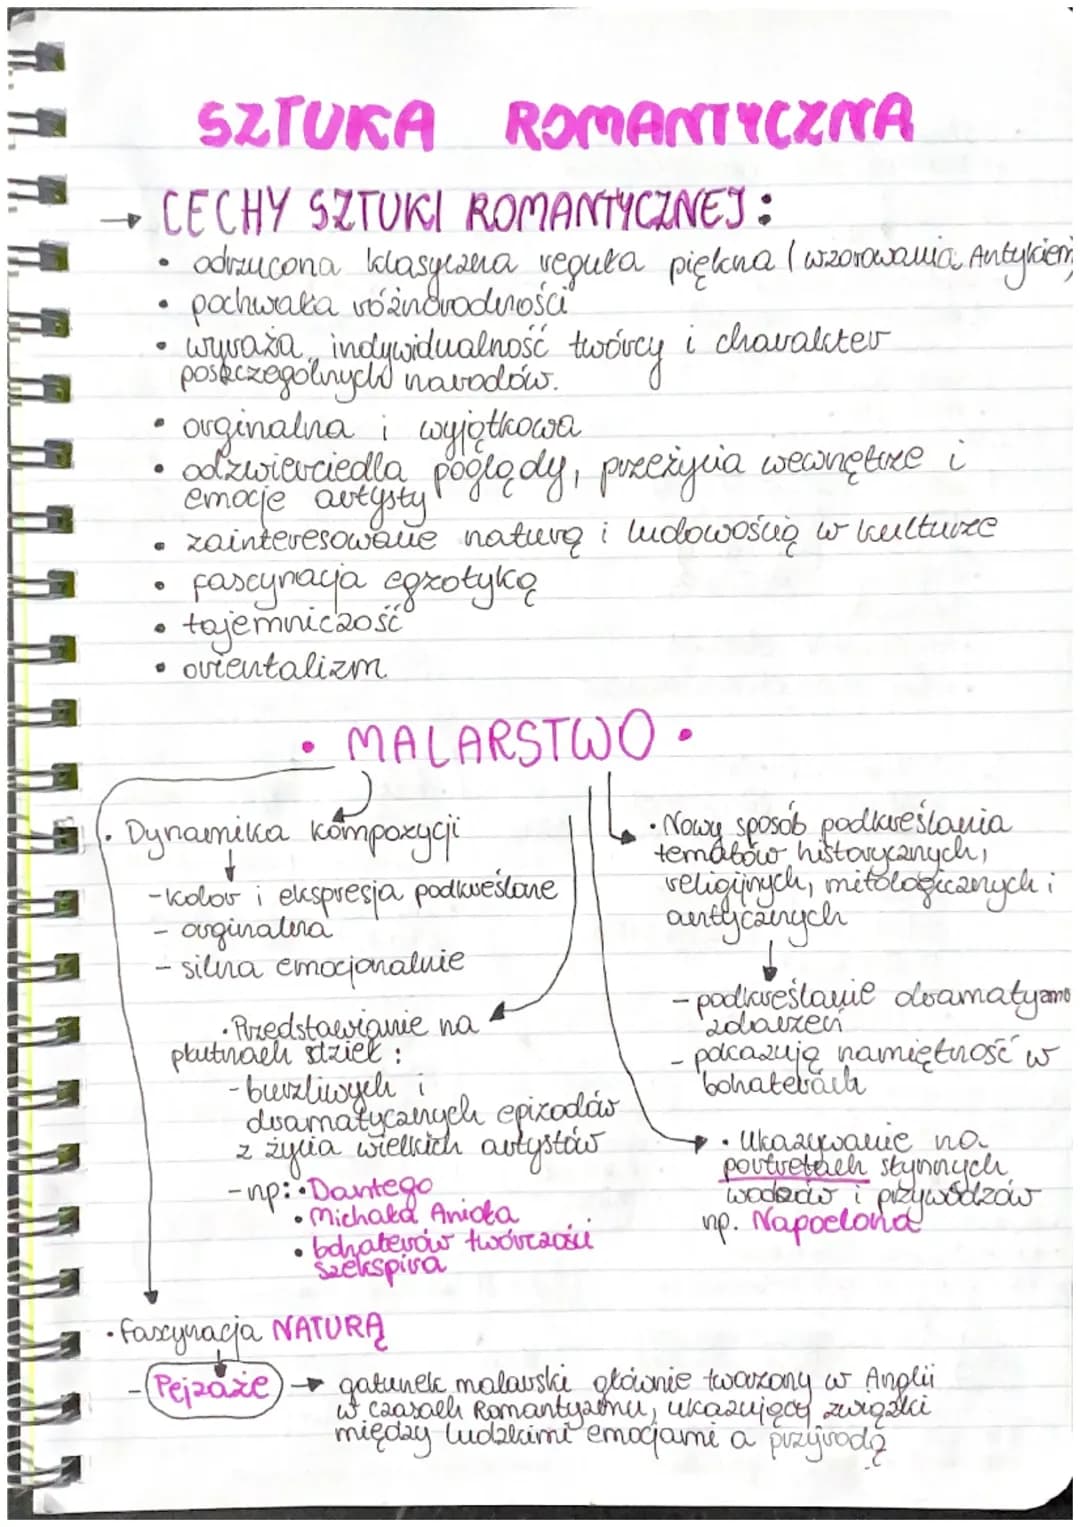 SZTUKA ROMANTYCZNA
→ CECHY SZTUKI ROMANTYCZNEJ:
• odrzucona klasyczna reguła piękna (wzorowania Antykiem)
• pochwała różnorodności
• wyraża indywidualność twórcy i charakter
poszczególnych narodów.
• orginalna i wyjątkowa
• odzwierciedla poglądy, przeżycia wewnętrze i
emocje artysty
• zainteresowanie naturą i ludowością w kulturze
• fascynacja egzotyką
• tajemniczość
• orientalizm
• MALARSTWO •
• Dynamika kompozycji
- kolor i ekspresja podkreślone
- orginalna
- silna emocjonalnie
• Nowy sposób podkreślania
tematów historycznych,
religijnych, mitologicznych i
antycznych
- podkreślanie dramatyzmo
zdarzeń
- pokazują namiętność w
bohaterach
• Przedstawianie na
płutnach dzieł:
- burzliwych i
dramatycznych epizodów
z życia wielkich artystów
- np: • Dantego
• Michała Anioła
• bohaterów twórczości
Szekspira
• Ukazywanie na
portretach słynnych
wodzów i przywódzów
np. Napoelona
• fascynacja NATURĄ
- Pejzaże → gatunek malarski głównie tworzony w Anglii
w czasach Romantyzmu, ukazujący związki
między ludzkimi emocjami a przyrodą